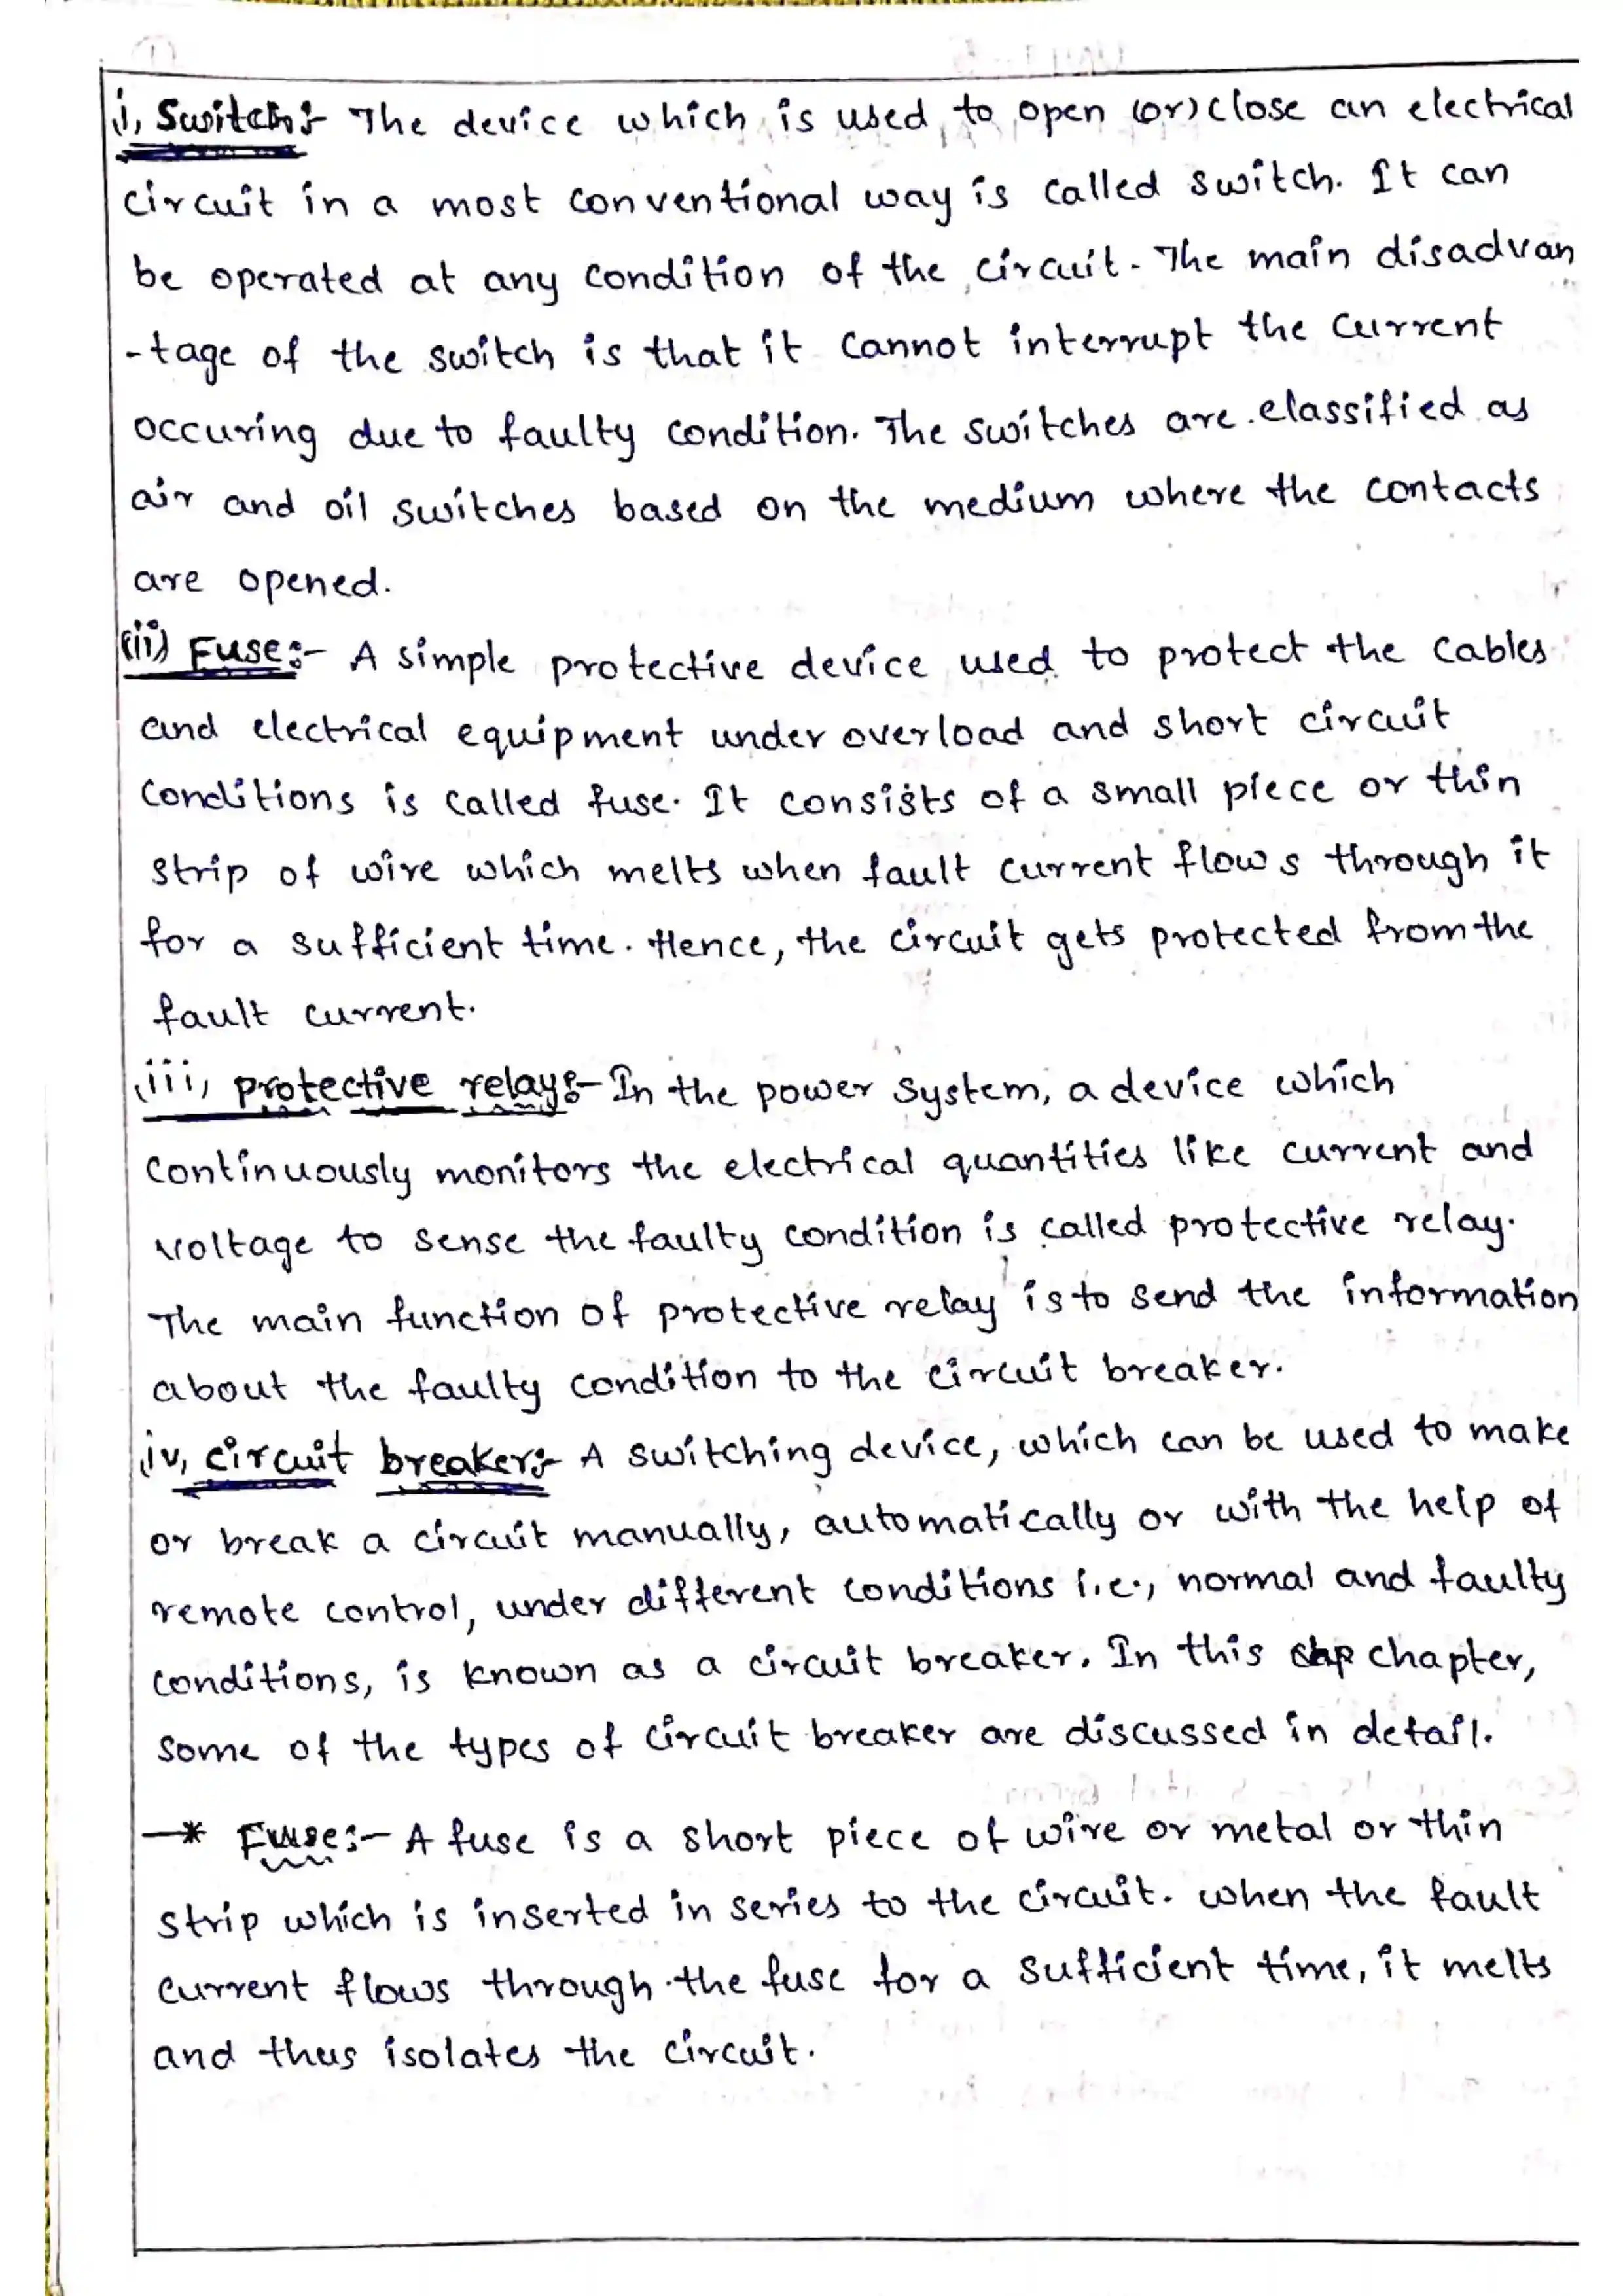 (i) Switch:- The device which is used to open (or) close an electrical
circuit in a most conventional way is called switch. It can
be operated at any condition of the circuit. The main disadvan
-tage of the switch is that it cannot interrupt the current
occuring due to faulty condition. The switches are classified as
air and oil switches based on the medium where the contacts
are opened.
(ii) Fuse:- A simple protective device used to protect the cables
and electrical equipment under overload and short circuit
conditions is called fuse. It consists of a small piece or thin
strip of wire which melts when fault current flows through it
for a sufficient time. Hence, the circuit gets protected from the
fault current.
(iii) protective relay:- In the power system, a device which
continuously monitors the electrical quantities like current and
voltage to sense the faulty condition is called protective relay.
The main function of protective relay is to send the information
about the faulty condition to the circuit breaker.
(iv) circuit breaker:- A switching device, which can be used to make
or break a circuit manually, automatically or with the help of
remote control, under different conditions i.e., normal and faulty
conditions, is known as a circuit breaker. In this chapter,
some of the types of circuit breaker are discussed in detail.
—* Fuse:- A fuse is a short piece of wire or metal or thin
strip which is inserted in series to the circuit. when the fault
current flows through the fuse for a sufficient time, it melts
and thus isolates the circuit.